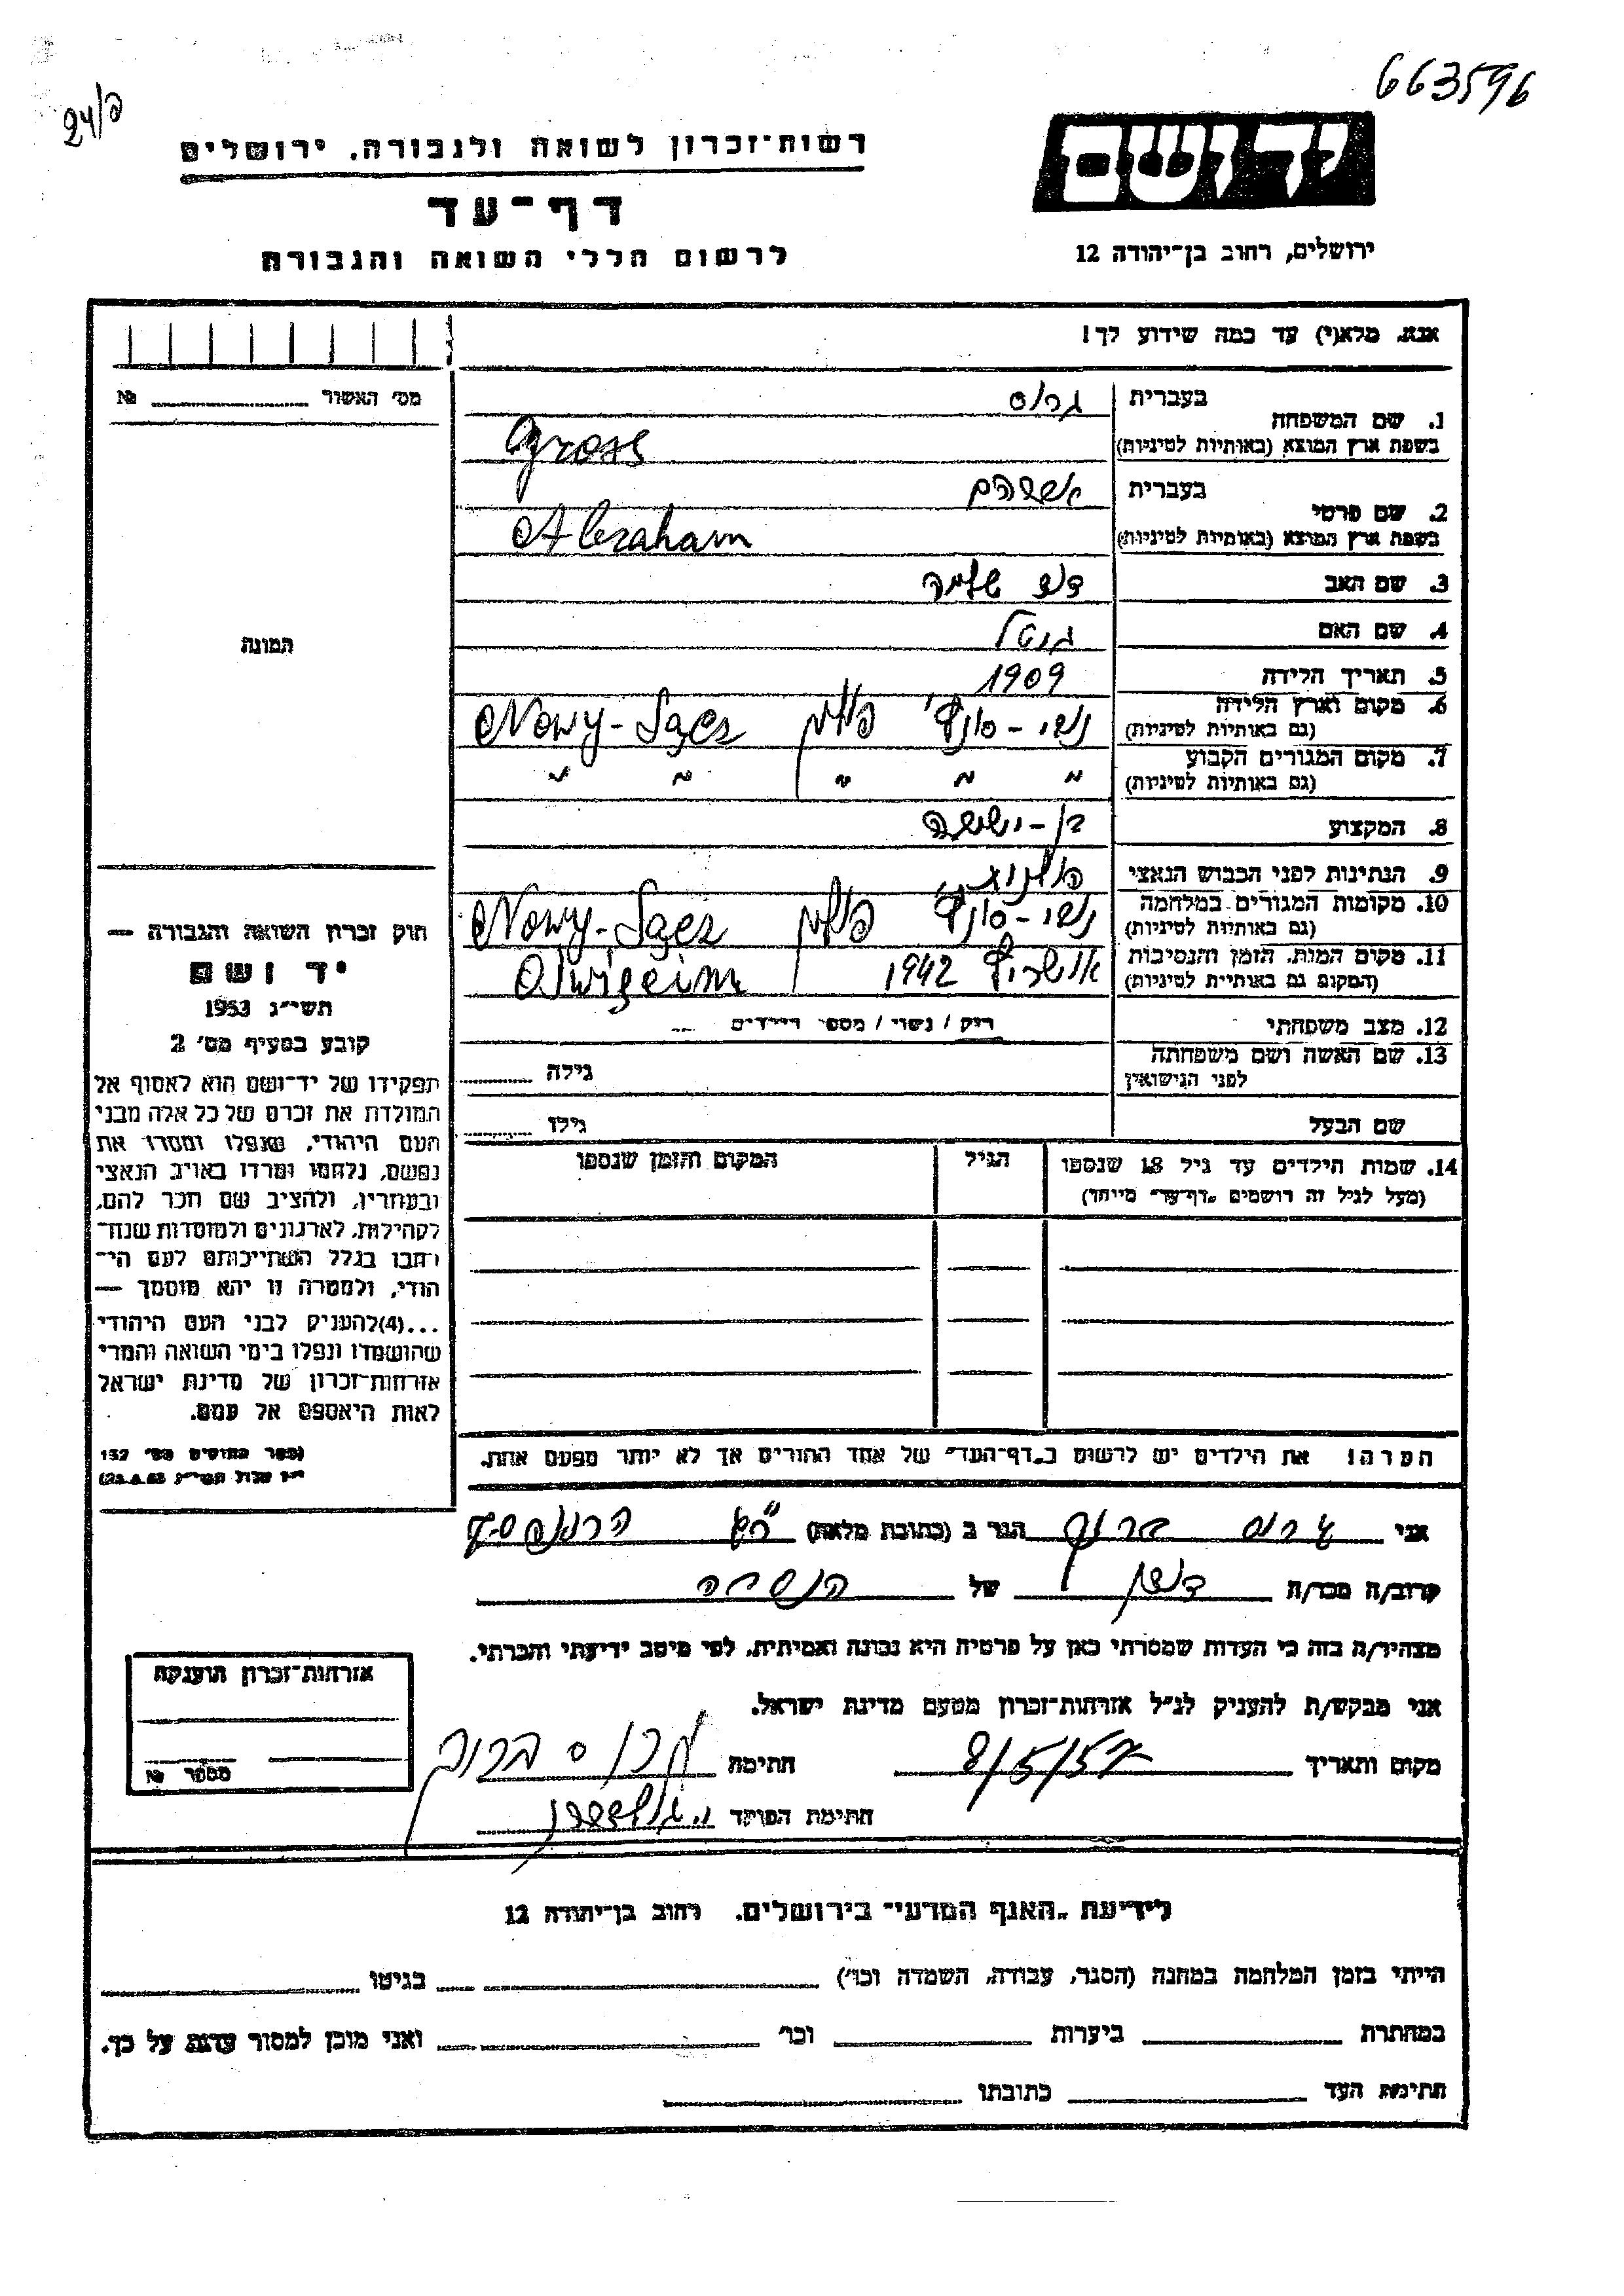 663596
24/פ
יד ושם
ירושלים, רחוב בן־יהודה 12
רשות־זכרון לשואה ולגבורה, ירושלים
דף־עד
לרשום חללי השואה והגבורה
אנא, מלא(י) עד כמה שידוע לך!
מס׳ האשור №
1. שם המשפחה בעברית גרוס
בשפת ארץ המוצא (באותיות לטיניות) Gross
2. שם פרטי בעברית אברהם
בשפת ארץ המוצא (באותיות לטיניות) Abraham
3. שם האב דוב שלמה
4. שם האם גיטל
5. תאריך הלידה 1909
6. מקום וארץ הלידה נובי-סונץ׳ פולין Nowy-Sącz
(גם באותיות לטיניות)
7. מקום המגורים הקבוע " " " " "
(גם באותיות לטיניות)
8. המקצוע בן-ישיבה
9. הנתינות לפני הכבוש הנאצי פולנית
10. מקומות המגורים במלחמה נובי-סונץ׳ פולין Nowy-Sącz
(גם באותיות לטיניות)
11. מקום המות, הזמן והנסיבות אושביץ 1942 Oświęcim
(המקום גם באותיות לטיניות)
12. מצב משפחתי רווק / נשוי / מספר הילדים
13. שם האשה ושם משפחתה גילה
לפני הנישואין
שם הבעל גילו
14. שמות הילדים עד גיל 18 שנספו הגיל המקום והזמן שנספו
(מעל לגיל זה רושמים „דף־עד״ מיוחד)
הערה! את הילדים יש לרשום ב„דף־העד״ של אחד ההורים אך לא יותר מפעם אחת.
התמונה
חוק זכרון השואה והגבורה —
יד ושם
תשי״ג 1953
קובע בסעיף מס׳ 2
תפקידו של יד־ושם הוא לאסוף אל
המולדת את זכרם של כל אלה מבני
העם היהודי, שנפלו ומסרו את
נפשם, נלחמו ומרדו באויב הנאצי
ובעוזריו, ולהציב שם וזכר להם,
לקהילות, לארגונים ולמוסדות שנח־
רבו בגלל השתייכותם לעם הי־
הודי, ולמטרה זו יהא מוסמך —
...(4)להעניק לבני העם היהודי
שהושמדו ונפלו בימי השואה והמרי
אזרחות־זכרון של מדינת ישראל
לאות היאספם אל עמם.
(ספר החוקים מס׳ 132
אני גרוס ברוך הגר ב (כתובת מלאה)
קרוב/ה מכר/ה של
מצהיר/ה בזה כי העדות שמסרתי כאן על פרטיה היא נכונה ואמיתית, לפי מיטב ידיעתי והכרתי.
אני מבקש/ת להעניק לנ״ל אזרחות־זכרון מטעם מדינת ישראל.
מקום ותאריך 8/5/57 חתימה גרוס ברוך
חתימת הפוקד
אזרחות־זכרון הוענקה
מספר №
לידיעת „האגף המדעי״ בירושלים, רחוב בן־יהודה 12
הייתי בזמן המלחמה במחנה (הסגר, עבודה, השמדה וכו׳) בגיטו
במחתרת ביערות וכו׳ ואני מוכן למסור עדות על כך.
חתימת העד כתובתו